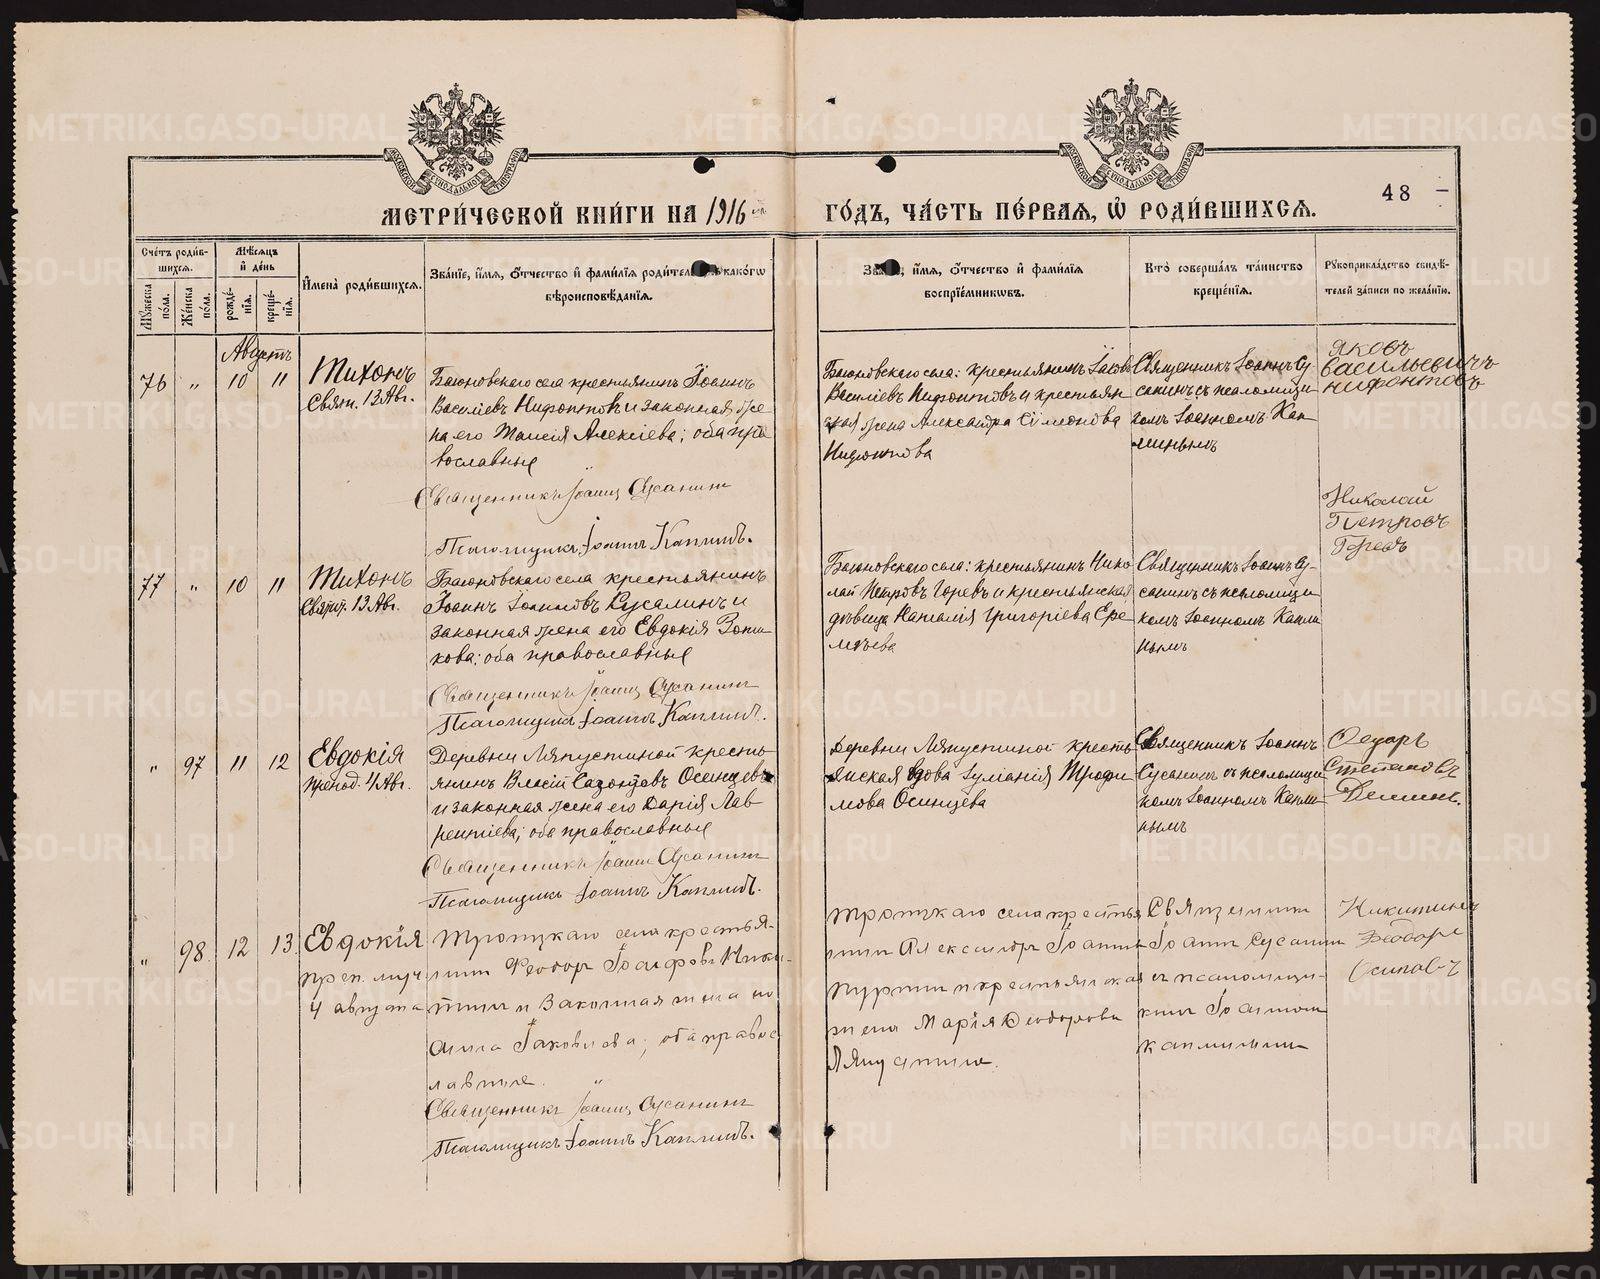 МЕТРИ́ЧЕСКОЙ КНИ́ГИ НА 1916 й
ГО́ДЪ, ЧА́СТЬ ПЕ́РВАЯ, Ѡ҆ РОДИ́ВШИХСЯ.
48
Сче́тъ роди́в-
шихся.
Мѣ́сяцъ
и҆ де́нь
Мꙋ́жеска по́ла.
Же́нска по́ла.
рожде́-
нїя.
креще́-
нїя.
И҆мена̀ роди́вшихся.
Зва́нїе, и҆́мя, ѻ҆́тчество и҆ фами́лїя роди́телей како́гѡ
вѣроисповѣ́данїя.
и҆́мя, ѻ҆́тчество и҆ фами́лїя
воспрїе́мникѡвъ.
Кто̀ соверша́лъ та́инство
креще́нїя.
Рꙋкоприкла́дство свидѣ́-
телей за́писи по жела́нїю.
Августъ
76 „ 10 11
Тихонъ
Свят. 13 Авг.
села крестьянинъ Іоаннъ
Василіевъ Нифонтовъ и законная же
на его Таисія Алексіева; оба пра
вославные
Священникъ Іоаннъ Сусанинъ
Псаломщикъ Іоаннъ Каплинъ.
села: крестьянинъ Іаковъ
Василіевъ Нифонтовъ и крестьян
ская жена Александра Сімеонова
Нифонтова
Священникъ Іоаннъ Су
санинъ съ псаломщи
комъ Іоанномъ Кап
линымъ
Яковъ
Васильевичъ
Нифонтовъ
77 „ 10 11
Тихонъ
Свят. 13 Авг.
села крестьянинъ
Іоаннъ
законная жена его Евдокія
кова; оба православные
Священникъ Іоаннъ Сусанинъ
Псаломщикъ Іоаннъ Каплинъ.
села: крестьянинъ Нико
лай Петровъ Горевъ и крестьянская
дѣвица Наталія Григоріева Ере
мѣева
Священникъ Іоаннъ Су-
санинъ съ псаломщи
комъ Іоанномъ Капли
нымъ
Николай
Петровъ
Горевъ
„ 97 11 12
Евдокія
препод. 4 Авг.
Деревни Ляпустиной кресть
янинъ Сазонтовъ Осинцевъ
и законная жена его Дарія Лав
рентіева; оба православные
Священникъ Іоаннъ Сусанинъ
Псаломщикъ Іоаннъ Каплинъ.
Деревни Ляпустиной кресть
янская вдова Іуліанія Трофи
мова Осинцева
Священникъ Іоаннъ
Сусанинъ съ псаломщи
комъ Іоанномъ Капли
нымъ
Федоръ
Степановъ
Деминъ.
„ 98. 12 13.
Евдокія
преп. муч.
4 августа
Троицкаго села крестья-
нинъ Феодоръ Іосифовъ Ники-
тинъ и законная жена его
Анна Іаковлева; оба правос
лавные.
Священникъ Іоаннъ Сусанинъ
Псаломщикъ Іоаннъ Каплинъ.
Троицкаго села крестья
нинъ Александръ Іоанновъ
и крестьянская
жена Марія Феодорова
Ляпустина.
Священникъ
Іоаннъ Сусанинъ
съ псаломщи-
комъ Іоанномъ
Каплинымъ
Никитинъ
Феодоръ
Осиповъ
METRIKI.GASO-URAL.RU